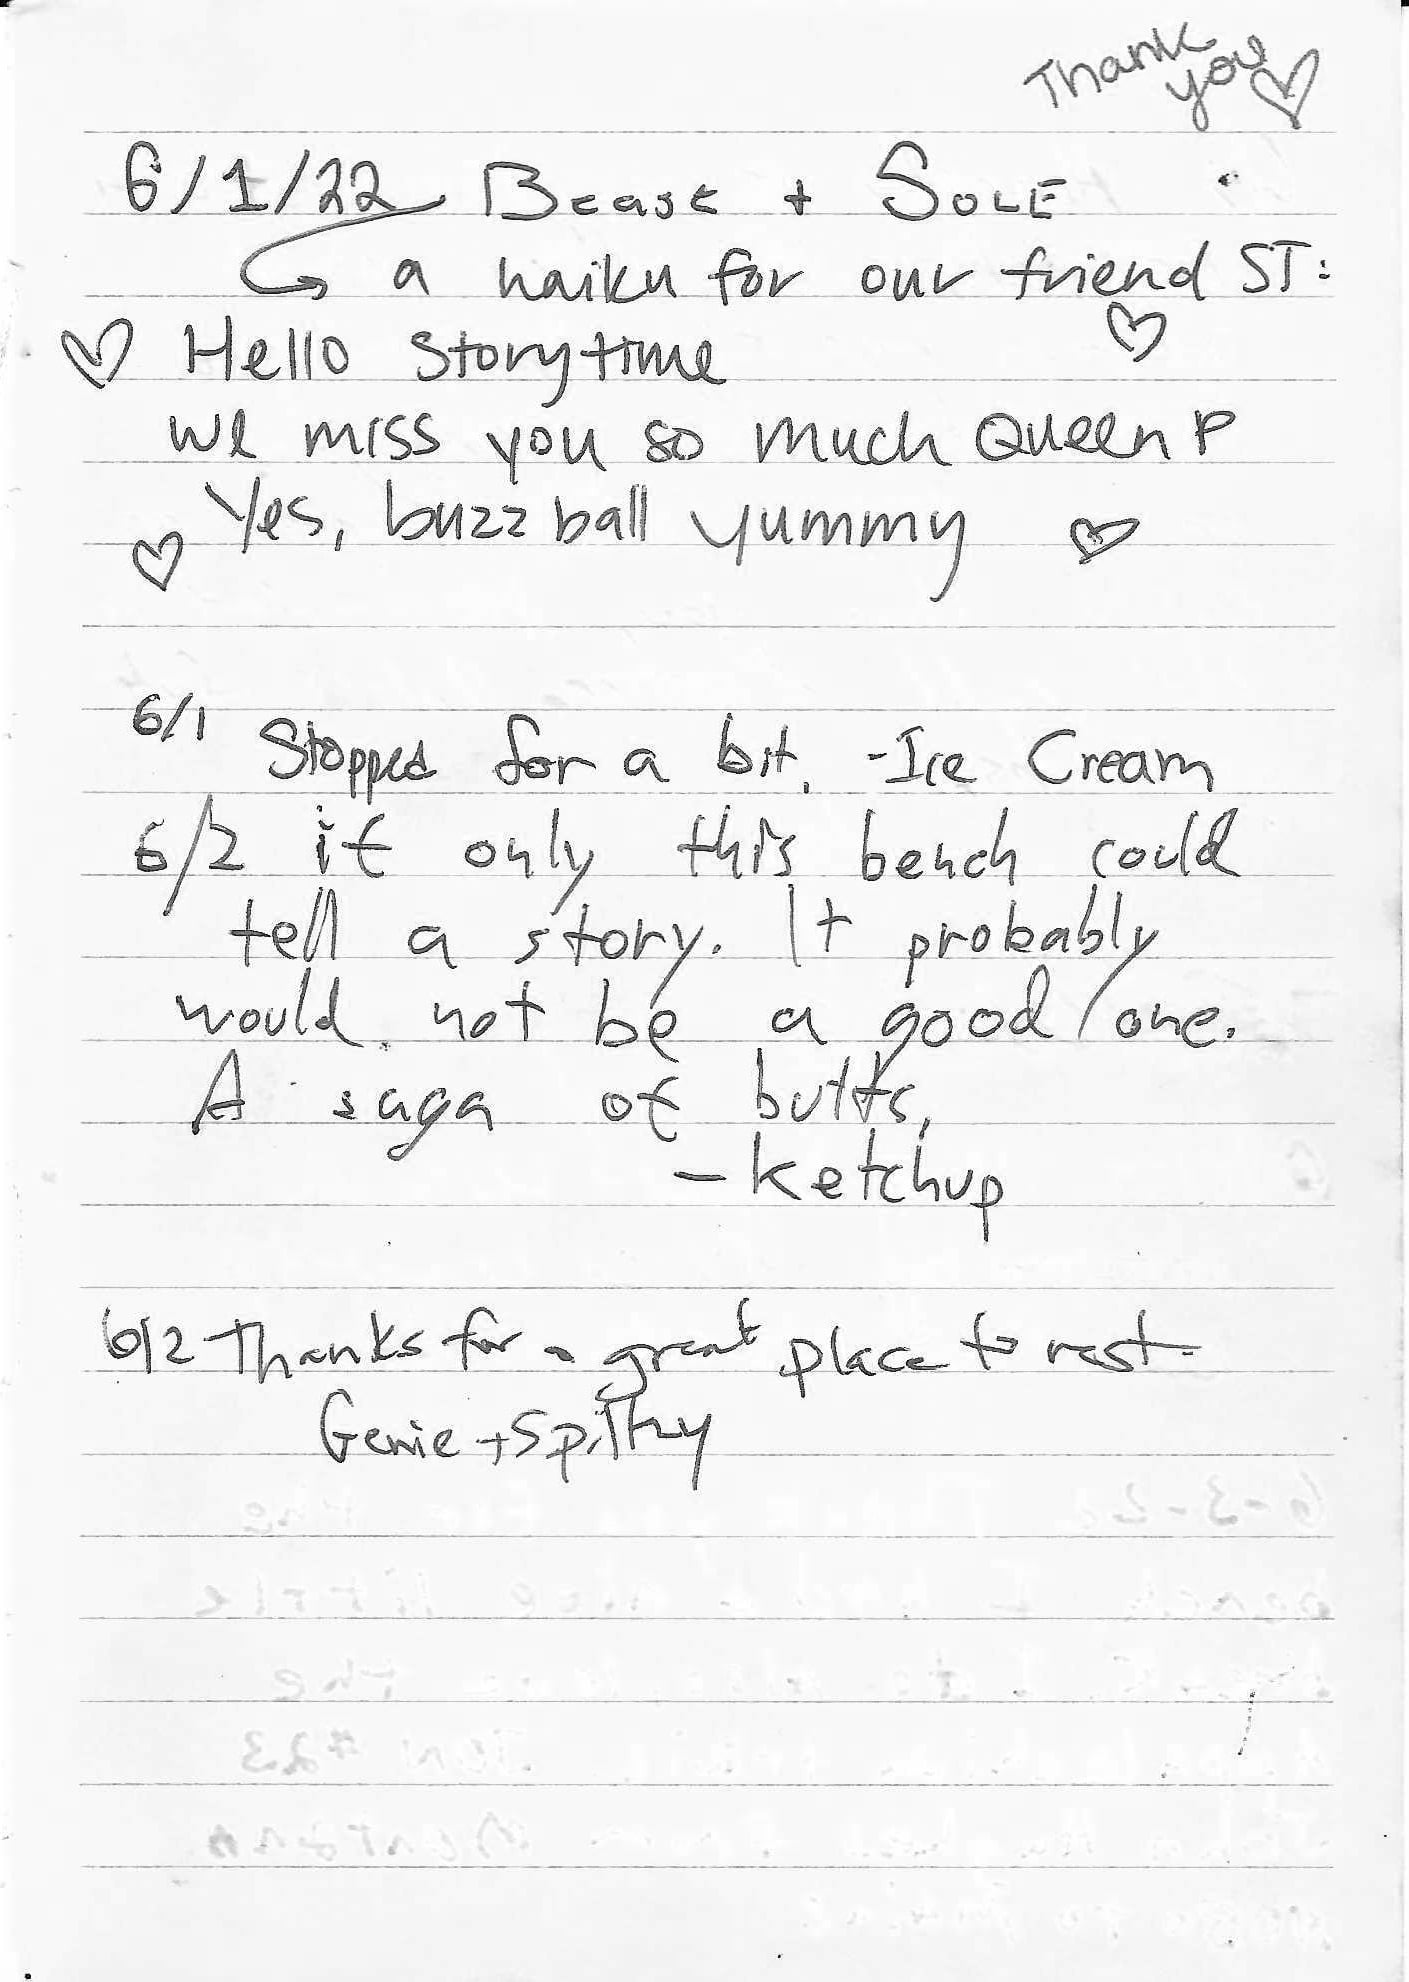 Thank
you ♡
6/1/22 Beast + SOLE
a haiku for our friend ST:
Hello Storytime
we miss you so much Queen P
Yes, buzz ball yummy
6/1 Stopped for a bit. -Ice Cream
6/2 if only this bench could
tell a story. It probably
would not be a good one.
A saga of butts.
- Ketchup
6/2 Thanks for a great place to rest.
Genie +